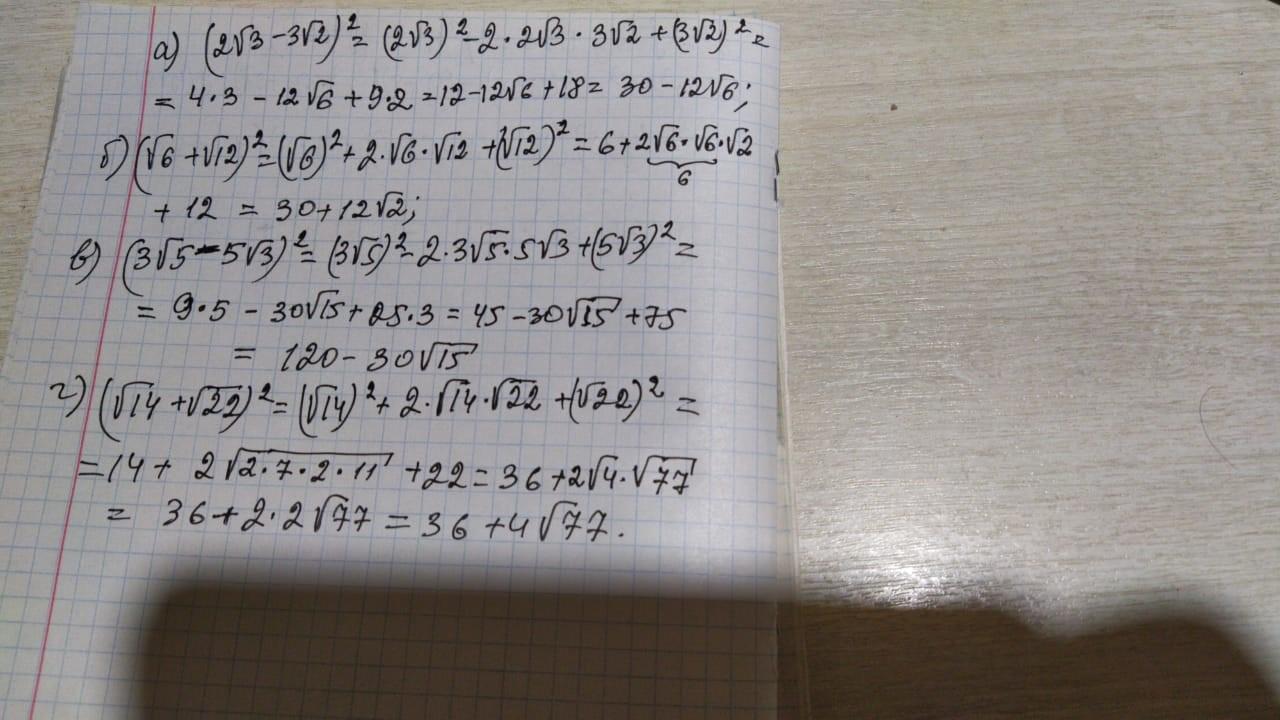 а) (2√3 - 3√2)² = (2√3)² - 2·2√3·3√2 + (3√2)² =
= 4·3 - 12√6 + 9·2 = 12 - 12√6 + 18 = 30 - 12√6;
б) (√6 + √12)² = (√6)² + 2·√6·√12 + (√12)² = 6 + 2√6·√6·√2
6
+ 12 = 30 + 12√2;
в) (3√5 - 5√3)² = (3√5)² - 2·3√5·5√3 + (5√3)² =
= 9·5 - 30√15 + 25·3 = 45 - 30√15 + 75
= 120 - 30√15
г) (√14 + √22)² = (√14)² + 2·√14·√22 + (√22)² =
= 14 + 2√2·7·2·11 + 22 = 36 + 2√4·√77
= 36 + 2·2√77 = 36 + 4√77.